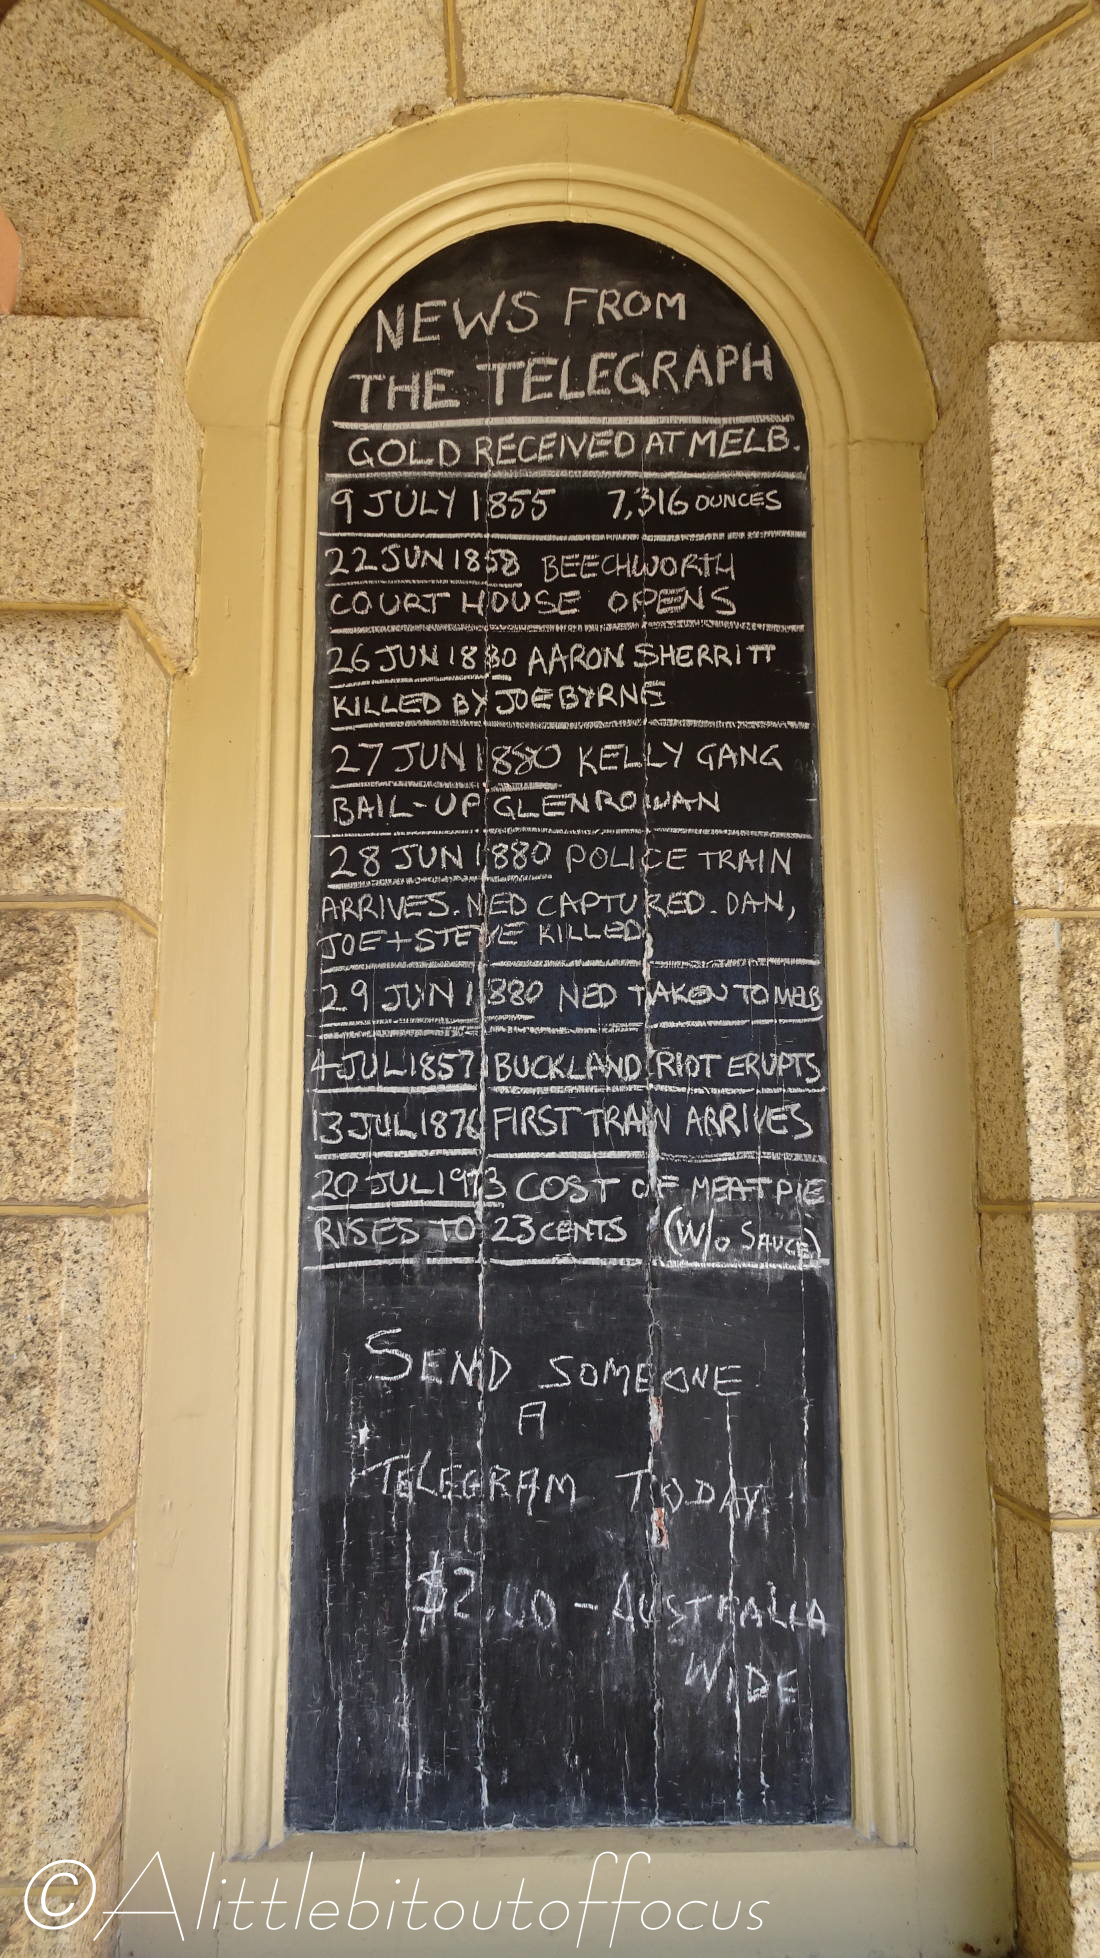 NEWS FROM
THE TELEGRAPH
GOLD RECEIVED AT MELB.
9 JULY 1855 7,316 OUNCES
22 JUN 1858 BEECHWORTH
COURT HOUSE OPENS
26 JUN 1880 AARON SHERRITT
KILLED BY JOE BYRNE
27 JUN 1880 KELLY GANG
BAIL-UP GLENROWAN
28 JUN 1880 POLICE TRAIN
ARRIVES. NED CAPTURED. DAN,
JOE + STEVE KILLED
29 JUN 1880 NED TAKEN TO MELB
4 JUL 1857 BUCKLAND RIOT ERUPTS
13 JUL 1876 FIRST TRAIN ARRIVES
20 JUL 1973 COST OF MEAT PIE
RISES TO 23 CENTS (W/O SAUCE)
SEND SOMEONE
A
TELEGRAM TODAY
$2.40 - AUSTRALIA
WIDE
©Alittlebitoutoffocus